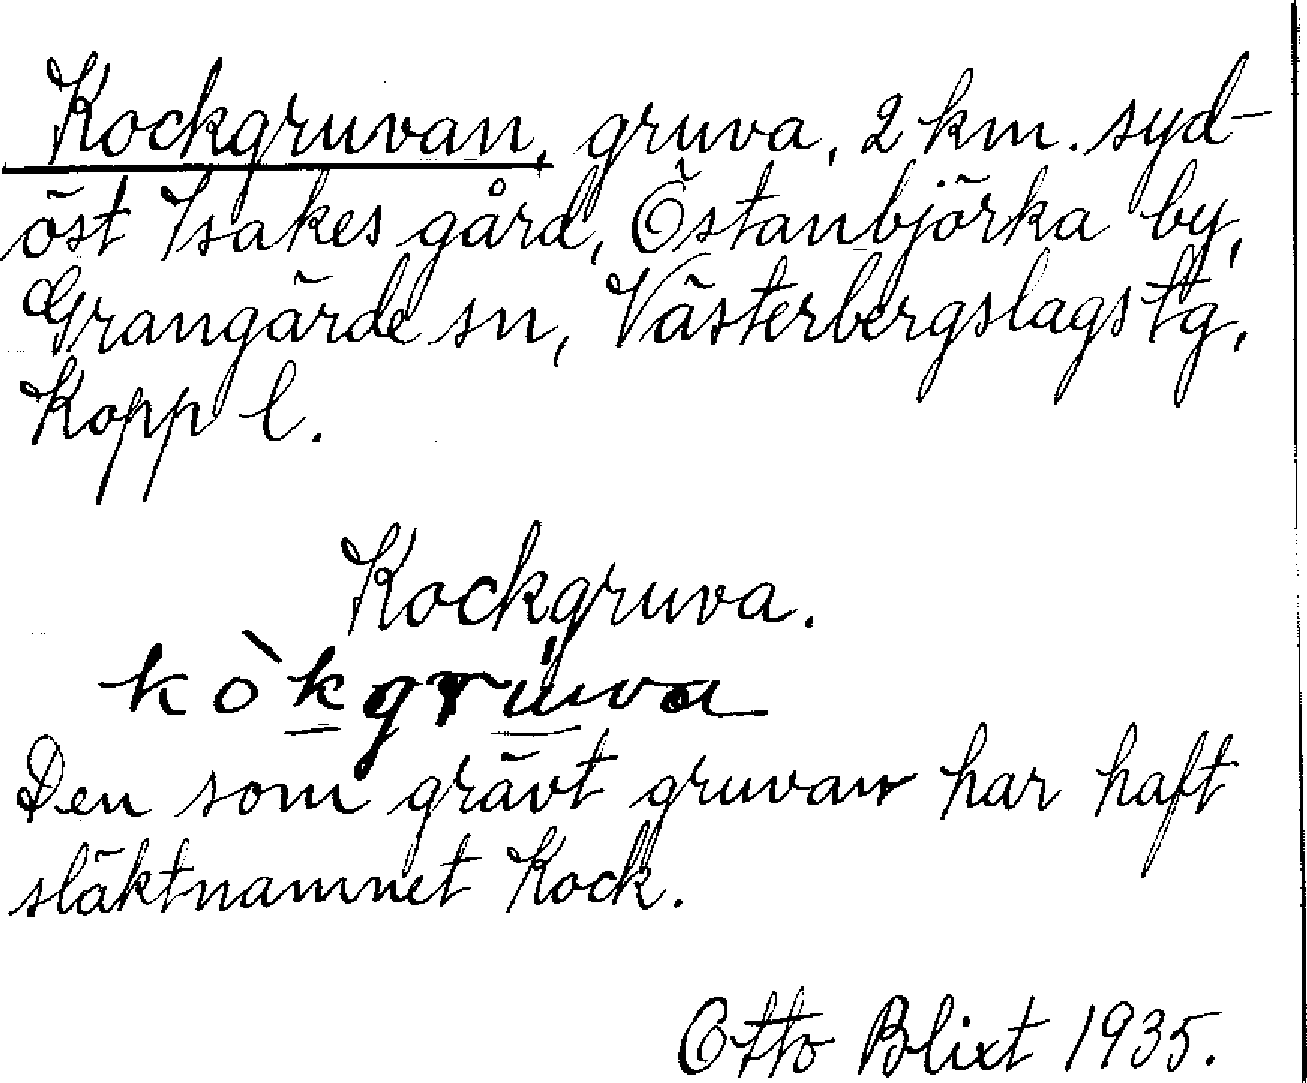 Kockgruvan, gruva, 2 km. syd-
öst Isakes gård, Östanbjörka by,
Grangärde sn, Västerbergslags tg,
Kopp l.
Kockgruva.
kòkgrúwa
Den som grävt gruvan har haft
släktnamnet Kock.
Otto Blixt 1935.